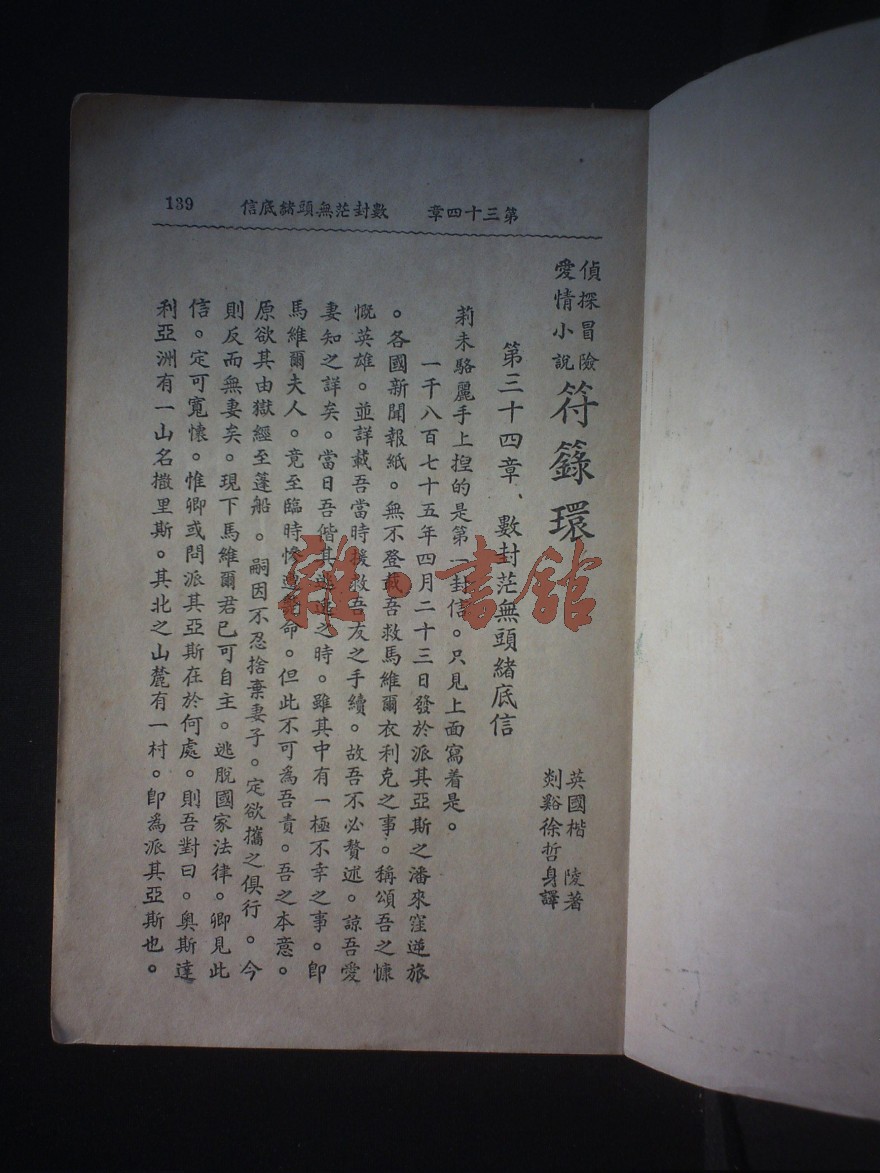 第三十四章 數封茫無頭緒底信 139
偵探冒險
愛情小說
符籙環
英國楷陵著
剡谿徐哲身譯
第三十四章、數封茫無頭緒底信
莉未駱麗手上揑的是第封信。只見上面寫着是。
一千八百七十五年四月二十三日發於派其亞斯之潘來窪逆旅
。各國新聞報紙。無不登載吾救馬維爾衣利克之事。稱頌吾之慷
慨英雄。並詳載吾當時援救吾友之手續。故吾不必贅述。諒吾愛
妻知之詳矣。當日吾偕其之時。雖其中有一極不幸之事。即
馬維爾夫人。竟至臨時慘命。但此不可為吾責。吾之本意。
原欲其由獄經至蓬船。嗣因不忍捨棄妻子。定欲攜之俱行。今
則反而無妻矣。現下馬維爾君已可自主。逃脫國家法律。卿見此
信。定可寬懷。惟卿或問派其亞斯在於何處。則吾對曰。奧斯達
利亞洲有一山名撒里斯。其北之山麓有一村。即為派其亞斯也。
雜·書館